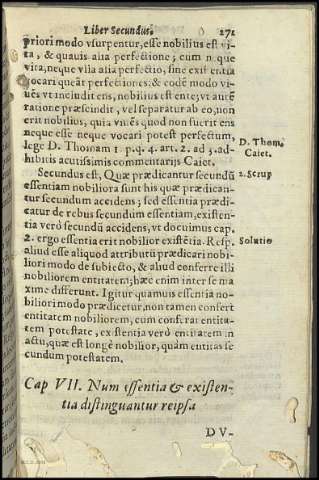 Liber Secundus. 271
priori modo vsurpentur, esse nobilius est vi-
ta, & quauis alia perfectione; cum neque
vita, neque vlla alia perfectio, sine existentia
vocari queãt perfectiones, & codẽ modo vi-
uẽs vt includit ens, nobilius est ente; vt autẽ
ratione præscindit, vel separatur ab eo, non
erit nobilius, quia viuẽs quod non fuerit ens
neque esse neque vocari potest perfectum,
lege D. Thomam 1. p. q. 4. art. 2. ad 3. ad-
hibitis acutissimis commentarijs Caiet.
D. Thom.
Caiet.
Secundus est, Quæ prædicantur secundũ
essentiam nobiliora sunt his quæ prædican-
tur secundum accidens; sed essentia prædi-
catur de rebus secundum essentiam, existen-
tia verò secundũ accidens, vt docuimus cap.
2. ergo essentia erit nobilior existẽtia. Resp.
aliud esse aliquod attributũ prædicari nobi-
liori modo de subiecto, & aliud conferre illi
nobiliorem entitatem; hæc enim inter se ma
xime differunt. Igitur quamuis essentia no-
biliori modo prædicetur, non tamen confert
entitatem nobiliorem, cum conferat entita-
tem potestate, existentia verò entitatem in
actu, quæ est longè nobilior, quàm entitas se
cundum potestatem.
2. Scrup
Solutio
Cap VII. Num essentia & existen-
tia distinguantur reipsa
DV-